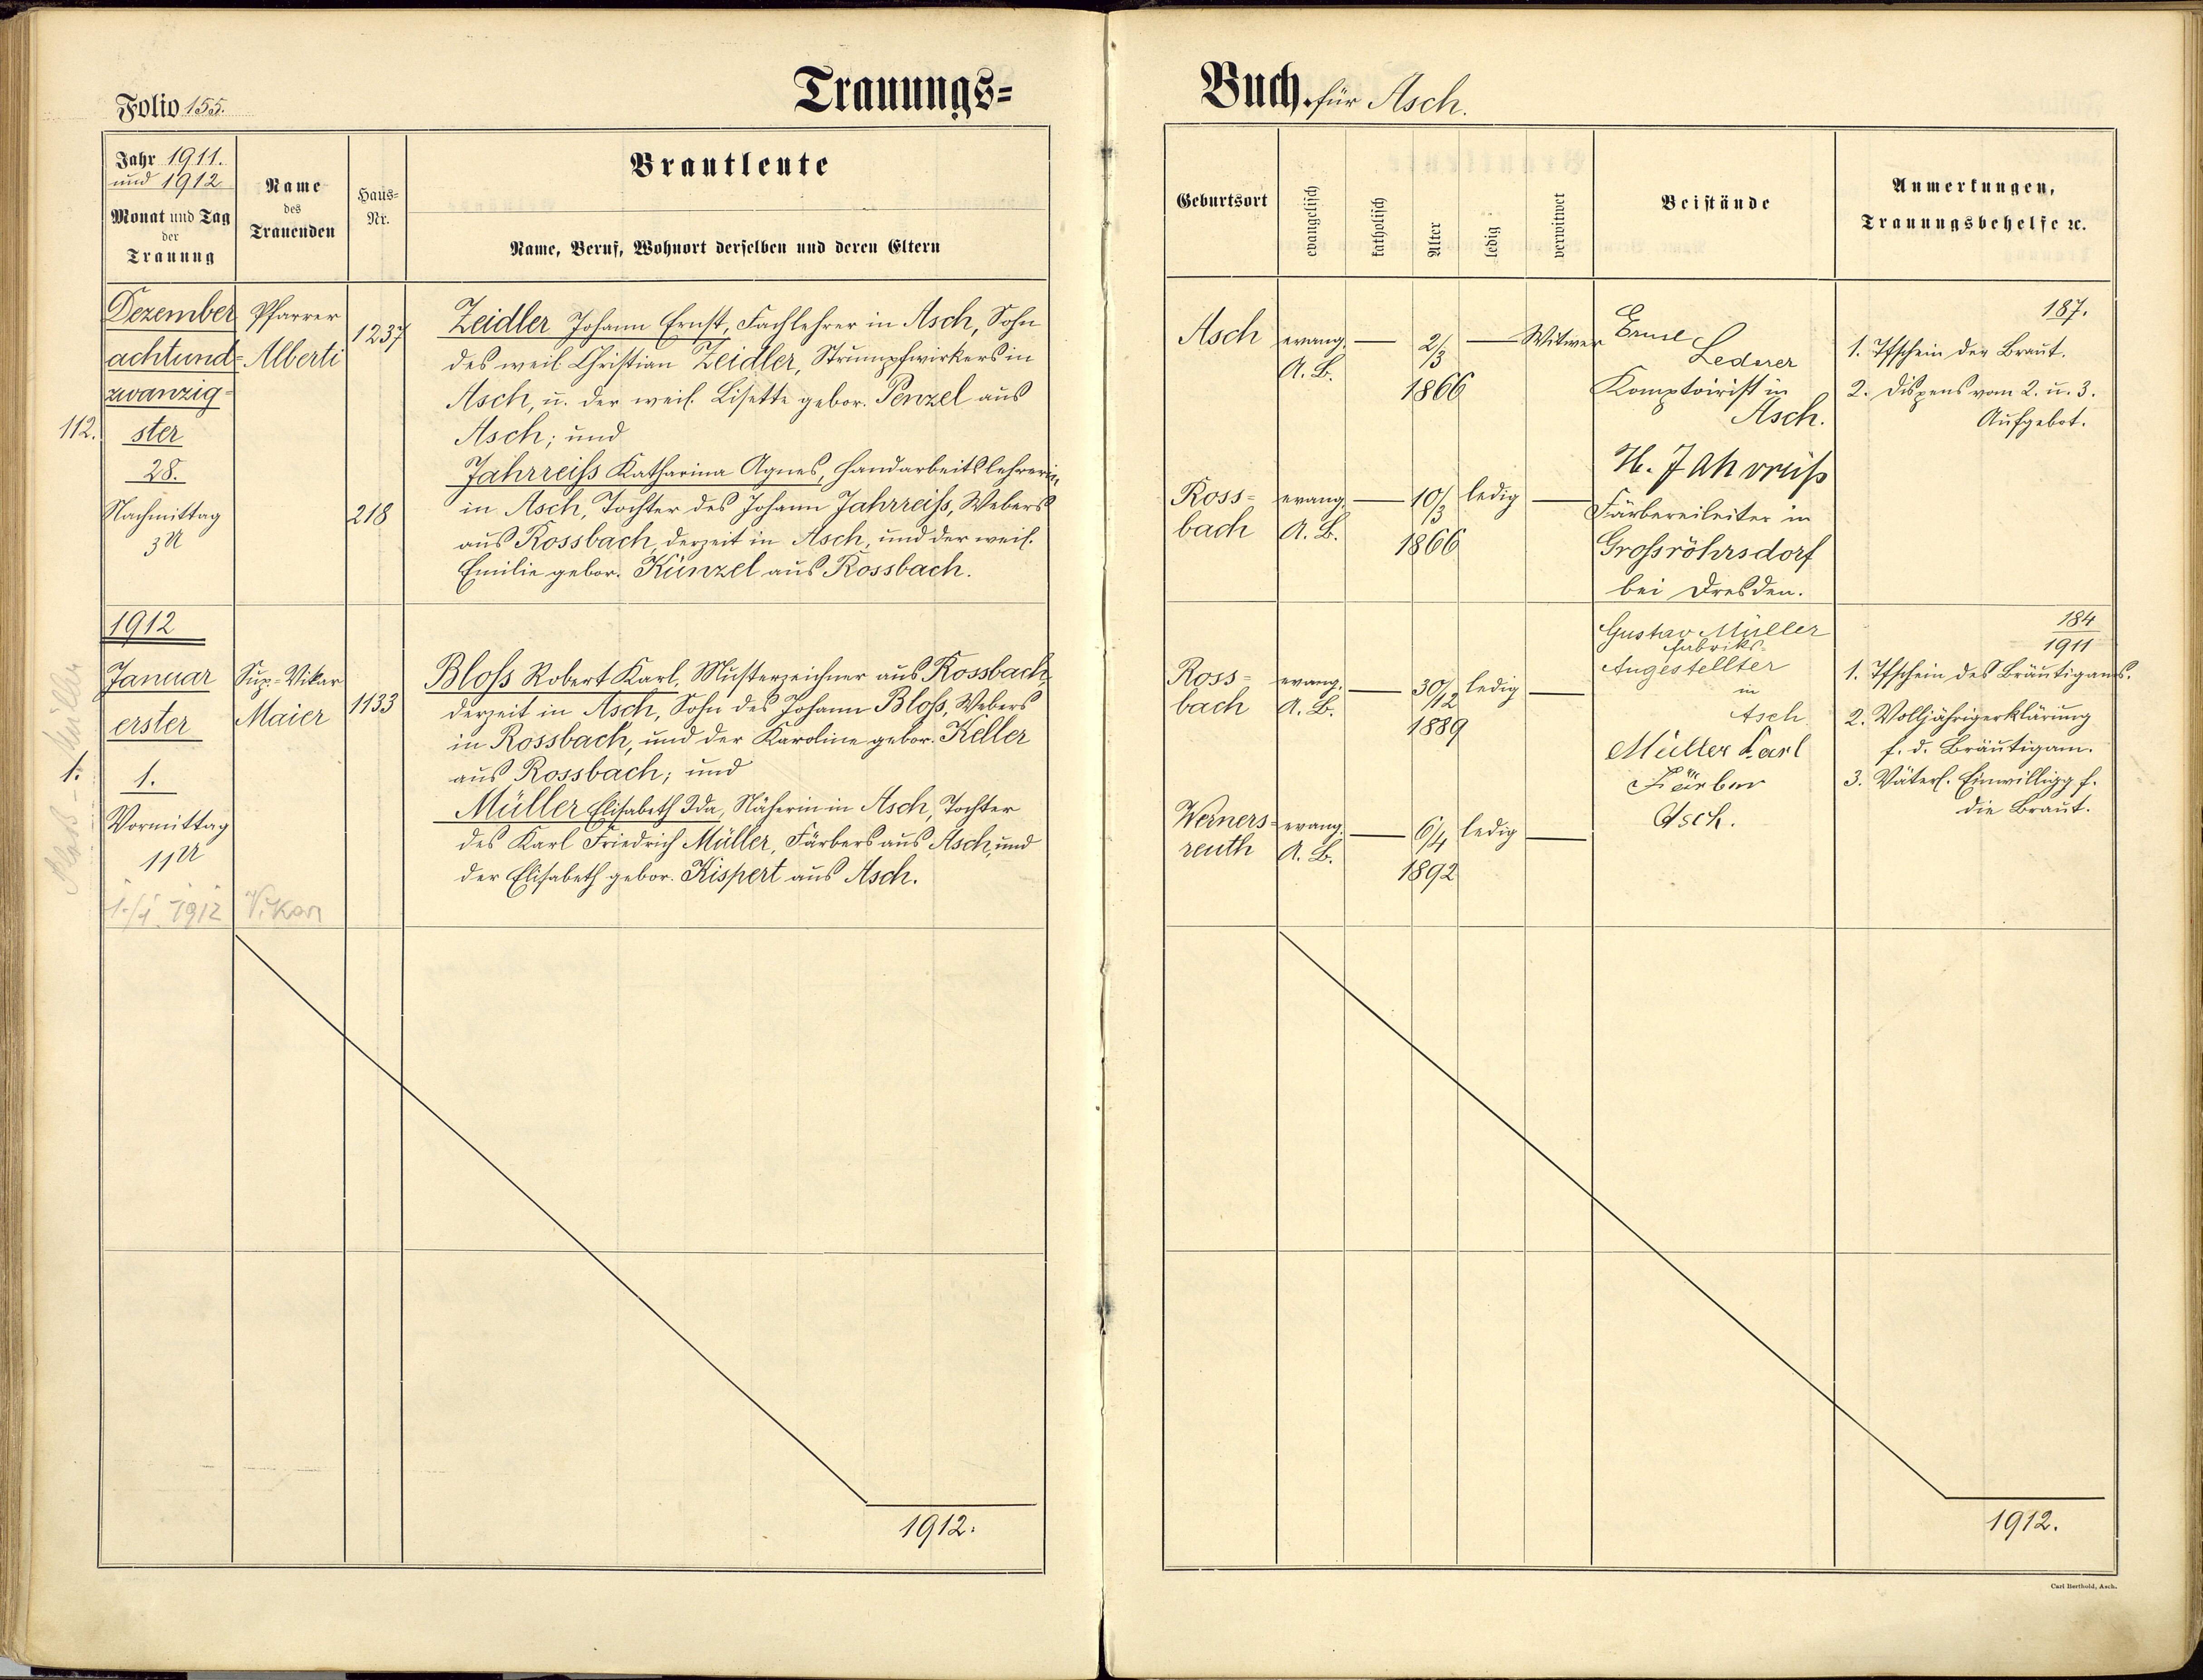 Folio 155.
Trauungs=
Jahr 1911.
und 1912
Monat und Tag
der
Trauung
Name
des
Trauenden
Haus=
Nr.
Brautleute
Name, Beruf, Wohnort derselben und deren Eltern
112.
Dezember
achtund=
zwanzig=
ster
28.
Nachmittag
3 U
Pfarrer
Alberti
1237
218
Zeidler Johann Ernst, Fachlehrer in Asch, Sohn
des weil. Christian Zeidler, Strumpfwirkers in
Asch, u. der weil. Lisette gebor. Penzel aus
Asch; und
Jahrreiß Katharina Agnes, Handarbeitslehrerin,
in Asch, Tochter des Johann Jahrreiß, Webers
aus Rossbach, derzeit in Asch, und der weil.
Emilie gebor. Künzel aus Rossbach.
1912
Bloß - Müller
1.
Januar
erster
1.
Vormittag
11 U
1./1. 1912
Sup.=Vikar
Maier
Vikar
1133
Bloß Robert Karl, Musterzeichner aus Rossbach
derzeit in Asch, Sohn des Johann Bloß, Webers
in Rossbach, und der Karoline gebor. Keller
aus Rossbach; und
Müller Elisabeth Ida, Näherin in Asch, Tochter
des Karl Friedrich Müller, Färbers aus Asch, und
der Elisabeth gebor. Kispert aus Asch.
1912.
Buch für Asch.
Geburtsort
evangelisch
katholisch
Alter
ledig
verwitwet
Beistände
Anmerkungen,
Trauungsbehelfe ꝛc.
Asch
evang.
A. B.
2/3
1866
Witwer
Ernst
Lederer
Komptoirist in
Asch.
187.
1. Tfschein der Braut.
2. Dispens vom 2. u. 3.
Aufgebot.
Ross=
bach
evang.
A. B.
10/3
1866
ledig
H. Jahrreiß
Färbereileiter in
Großröhrsdorf
bei Dresden.
Ross=
bach
evang.
A. B.
30/12
1889
ledig
Gustav Müller
Fabriks=
Angestellter
in
Asch.
184
1911
1. Tfschein des Bräutigams.
2. Volljährigerklärung
f. d. Bräutigam.
3. Väterl. Einwilligg f.
die Braut.
Werners=
reuth
evang.
A. B.
6/4
1892
ledig
Müller Karl
Färber
Asch.
1912.
Carl Berthold, Asch.